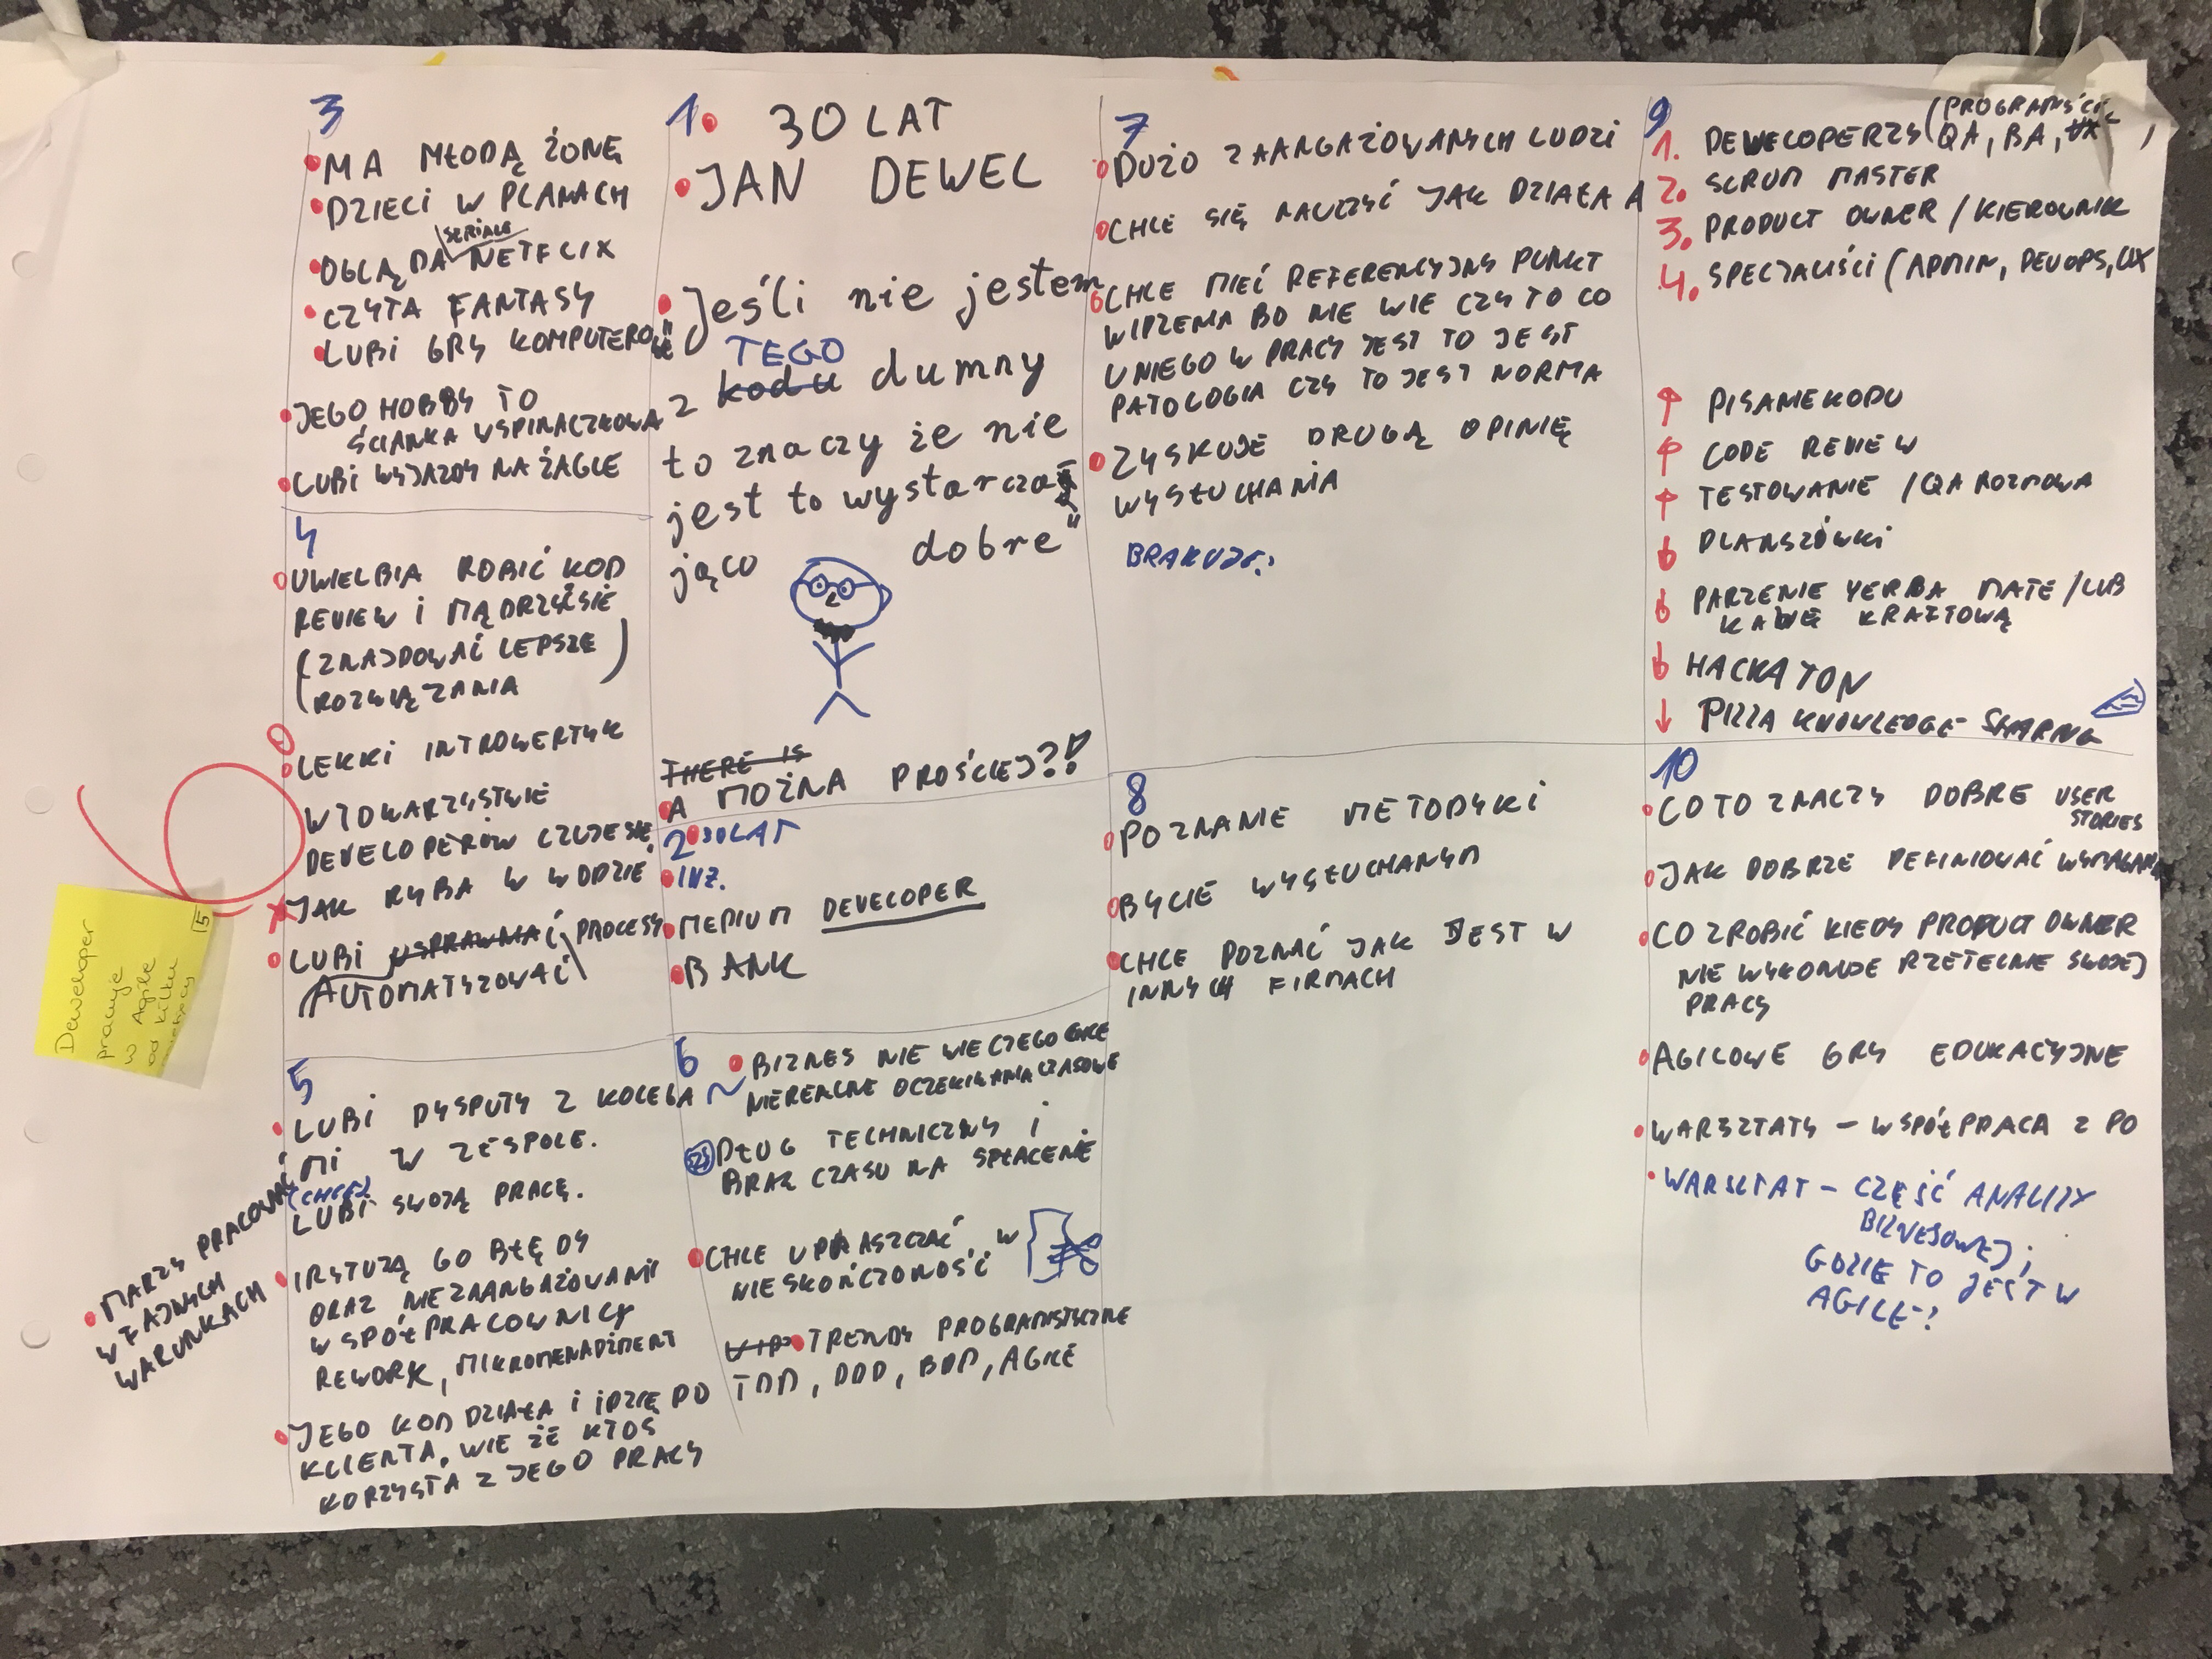 Deweloper
pracuje
w Agile
od kilku
miesięcy
15
6
3
MA MŁODĄ ŻONĘ
DZIECI W PLANACH
OGLĄDA NETFLIX
SERIALE
CZYTA FANTASY
LUBI GRY KOMPUTEROWE
JEGO HOBBY TO
ŚCIANKA WSPINACZKOWA
LUBI WYJAZDY NA ŻAGLE
4
UWIELBIA ROBIĆ KOD
REVIEW I MĄDRZYĆ SIĘ
(ZNAJDOWAĆ LEPSZE
ROZWIĄZANIA)
LEKKI INTROWERTYK
W TOWARZYSTWIE
DEVELOPERÓW CZUJE SIĘ
JAK RYBA W WODZIE
LUBI USPRAWNIAĆ PROCESY
(AUTOMATYZOWAĆ)
5
LUBI DYSPUTY Z KOLEGAMI
W ZESPOLE.
LUBI SWOJĄ PRACĘ.
MARZY PRACOWAĆ
W ZACNYCH
WARUNKACH
IRYTUJĄ GO BŁĘDY
ORAZ NIEZAANGAŻOWANI
WSPÓŁPRACOWNICY
REWORK, MIKROMENADŻMENT
JEGO KOD DZIAŁA I IDZIE DO
KLIENTA, WIE ŻE KTOŚ
KORZYSTA Z JEGO PRACY
1. 30 LAT
JAN DEWEL
"Jeśli nie jestem
z TEGO
kodu dumny
to znaczy że nie
jest to wystarcza
jąco dobre"
THERE IS
A MOŻNA PROŚCIEJ??!
2
5 LAT
INŻ.
MEDIUM DEVELOPER
BANK
6
BIZNES NIE WIE CZEGO CHCE
NIEREALNE OCZEKIWANIA CZASOWE
DŁUG TECHNICZNY I
BRAK CZASU NA SPŁACENIE
CHCE UPRASZCZAĆ W
NIESKOŃCZONOŚĆ
TRENDY PROGRAMISTYCZNE
TDD, DDD, BDD, AGILE
7
DUŻO ZAANGAŻOWANYCH LUDZI
CHCE SIĘ NAUCZYĆ JAK DZIAŁA A
CHCE MIEĆ REFERENCYJNY PUNKT
WIDZENIA BO NIE WIE CZY TO CO
U NIEGO W PRACY JEST TO JEST
PATOLOGIA CZY TO JEST NORMA
ZYSKUJE DRUGĄ OPINIĘ
WYSŁUCHANIA
BRAKUJE:
8
POZNANIE METODYKI
BYCIE WYSŁUCHANYM
CHCE POZNAĆ JAK JEST W
INNYCH FIRMACH
9
1. DEWELOPERZY (PROGRAMIŚCI,
QA, BA, UX)
2. SCRUM MASTER
3. PRODUCT OWNER / KIEROWNIK
4. SPECJALIŚCI (ADMIN, DEVOPS, UX
PISANIE KODU
CODE REVIEW
TESTOWANIE / QA ROZMOWA
PLANSZÓWKI
PARZENIE YERBA MATE / LUB
KAWĘ KRAFTOWĄ
HACKATON
PIZZA KNOWLEDGE SHARING
10
CO TO ZNACZY DOBRE USER
STORIES
JAK DOBRZE DEFINIOWAĆ WYMAGANIA
CO ZROBIĆ KIEDY PRODUCT OWNER
NIE WYKONUJE RZETELNIE SWOJEJ
PRACY
AGILOWE GRY EDUKACYJNE
WARSZTATY - WSPÓŁPRACA Z PO
WARSZTAT - CZĘŚĆ ANALIZY
BIZNESOWEJ
GDZIE TO JEST W
AGILE?